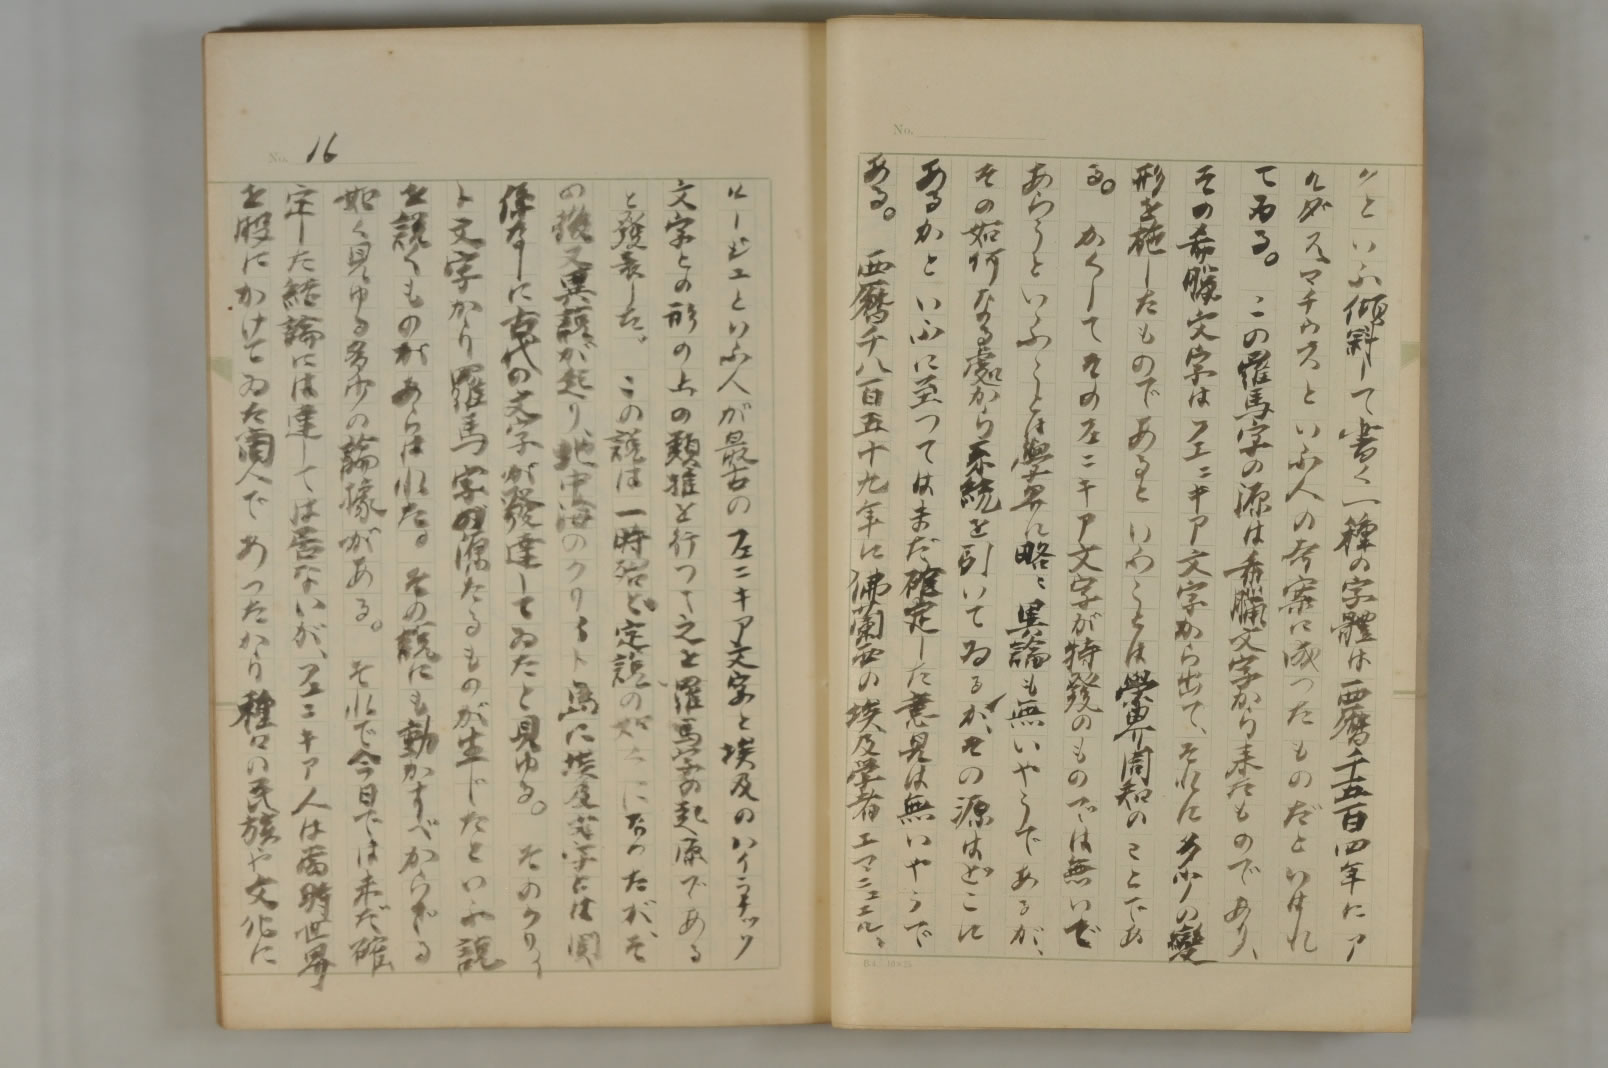 No.
クといふ傾斜して書く一種の字體は西曆千五百四年にア
ルダスマチウスといふ人の考案に成つたものだといはれ
てゐる。この羅馬字の源は希臘文字から來たものであり、
その希臘文字はフェニキア文字から出て、それに多少の變
形を施したものであるといふことは學界周知のことであ
る。かくしてそのフェニキア文字が特發のものでは無いで
あらうといふことは學界に略〻異論も無いやうであるが、
その如何なる處から系統を引いてゐるが、その源はどこに
あるかといふに至つては未だ確定した意見は無いやうで
ある。西曆千八百五十九年に佛蘭西の埃及學者エマニュエル、
B4. 10×25
No. 16
ルージェといふ人が最古のフェニキア文字と埃及のハイラチック
文字との形の上の類推を行つて之を羅馬字の起原である
と發表した。この說は一時殆ど定說の如くになつたが、そ
の後又異議が起り、地中海のクリート島に埃及文字とは關
係なしに古代の文字が發達してゐたと見ゆる。そのクリー
ト文字から羅馬字の源たるものが生じたといふ說
を說くものがあらはれた。その說にも動かすべからざる
如く見ゆる多少の論據がある。それで今日では未だ確
定した結論には達しては居ないが、フェニキア人は當時世界
を股にかけてゐた商人であつたから種々の民族や文化に